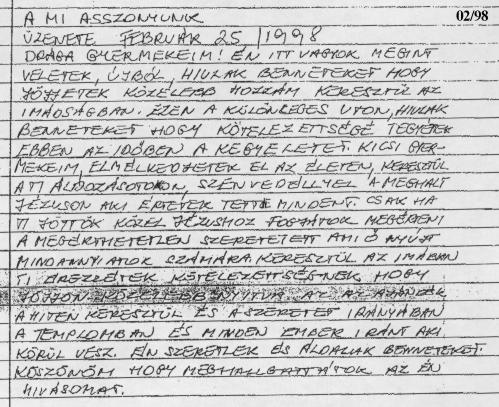 02/98
A MI ASSZONYUNK
ÜZENETE FEBRUÁR 25 /1998
DRÁGA GYERMEKEIM! ÉN ITT VAGYOK MEGINT
VELETEK, ÚJBÓL, HIVLAK BENNETEKET HOGY
JÖJJETEK KÖZELEBB HOZZÁM KERESZTÜL AZ
IMÁDSÁGBAN. EZEN A KÜLÖNLEGES UTON, HIVLAK
BENNETEKET HOGY KÖTELEZETTSÉGÉ TEGYÉTEK
EBBEN AZ IDŐBEN A KEGYELETET. KICSI GYER-
MEKEIM, ELMÉLKEDJETEK EL AZ ÉLETEN, KERESZTÜL
A TI ÁLDOZÁSOTOKON, SZENVEDÉLLYEL A MEGHALT
JÉZUSON AKI ÉRTETEK TETTE MINDENT. CSAK HA
TI JÖTTÖK KÖZEL JÉZUSHOZ FOGJÁTOK MEGÉRTENI
A MEGÉRTHETETLEN SZERETETETT AMI Ő NYÚJT
MINDANNYIATOK SZÁMÁRA. KERESZTÜL AZ IMÁBAN
TI ÉREZZÉTEK KÉTELEZETTSÉGNEK HOGY
JÖJJÖN KÖZELEBB NYITVA AZ AZ AJÁNDÉK
A HITEN KERESZTÜL ÉS A SZERETET IRÁNYÁBAN
A TEMPLOMBAN ÉS MINDEN EMBER IRÁNT AKI
KÖRÜL VESZ. ÉN SZERETLEK ÉS ÁLDALAK BENNETEKET.
KÖSZÖNÖM HOGY MEGHALLGATTÁTOK AZ ÉN
HIVÁSOMAT.